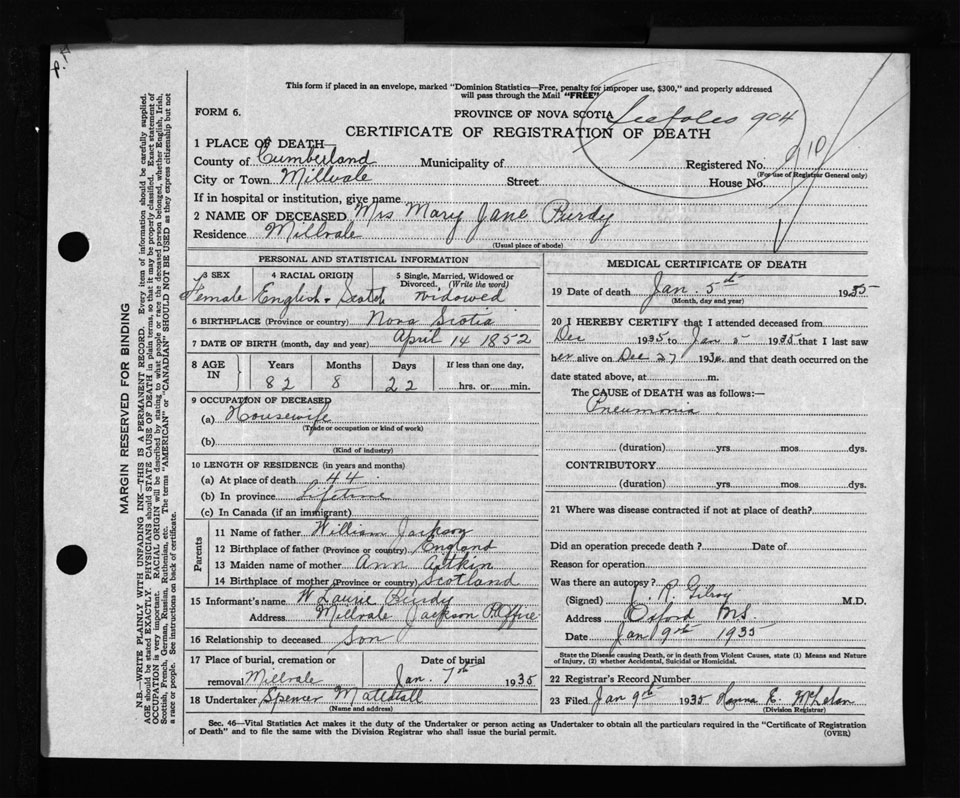 P.A
This form if placed in an envelope, marked "Dominion Statistics—Free, penalty for improper use, $300," and properly addressed
will pass through the Mail "FREE"
FORM 6.
PROVINCE OF NOVA SCOTIA
See folio 904
CERTIFICATE OF REGISTRATION OF DEATH
910
1 PLACE OF DEATH—
County of Cumberland Municipality of Registered No.
(For use of Registrar General only)
City or Town Millvale Street House No.
If in hospital or institution, give name
2 NAME OF DECEASED Mrs Mary Jane Purdy
Residence Millvale
(Usual place of abode)
PERSONAL AND STATISTICAL INFORMATION
3 SEX 4 RACIAL ORIGIN 5 Single, Married, Widowed or Divorced, (Write the word)
Female English & Scotch widowed
6 BIRTHPLACE (Province or country) Nova Scotia
7 DATE OF BIRTH (month, day and year) April 14 1852
8 AGE IN Years Months Days If less than one day,
82 8 22 hrs. or min.
9 OCCUPATION OF DECEASED
(a) Housewife
(Trade or occupation or kind of work)
(b)
(Kind of industry)
10 LENGTH OF RESIDENCE (in years and months)
(a) At place of death 44
(b) In province Lifetime
(c) In Canada (if an immigrant)
Parents
11 Name of father William Jackson
12 Birthplace of father (Province or country) England
13 Maiden name of mother Ann Aitkin
14 Birthplace of mother (Province or country) Scotland
15 Informant's name W Laurie Purdy
Address Millvale Jackson P. Office
16 Relationship to deceased Son
17 Place of burial, cremation or Date of burial
removal Millvale Jan. 7th 1935
18 Undertaker Spencer Mattatall
(Name and address)
MEDICAL CERTIFICATE OF DEATH
19 Date of death Jan. 5th 1935
(Month, day and year)
20 I HEREBY CERTIFY that I attended deceased from
Dec 1935 to Jan 5 1935 that I last saw
her alive on Dec 27 1934 and that death occurred on the
date stated above, at m.
The CAUSE of DEATH was as follows:—
Pneumonia
(duration) yrs. mos. dys.
CONTRIBUTORY
(duration) yrs. mos. dys.
21 Where was disease contracted if not at place of death?
Did an operation precede death? Date of
Reason for operation
Was there an autopsy?
(Signed) R. Gilroy M.D.
Address Oxford NS
Date Jan 9th 1935
State the Disease causing Death, or in death from Violent Causes, state (1) Means and Nature
of Injury, (2) whether Accidental, Suicidal or Homicidal.
22 Registrar's Record Number
23 Filed Jan 9th 1935 Hanna E. McLelan
(Division Registrar)
Sec. 46—Vital Statistics Act makes it the duty of the Undertaker or person acting as Undertaker to obtain all the particulars required in the "Certificate of Registration
of Death" and to file the same with the Division Registrar who shall issue the burial permit.
(OVER)
MARGIN RESERVED FOR BINDING
N.B.—WRITE PLAINLY WITH UNFADING INK—THIS IS A PERMANENT RECORD. Every item of information should be carefully supplied.
AGE should be stated EXACTLY. PHYSICIANS should STATE CAUSE OF DEATH in plain terms, so that it may be properly classified. Exact statement of
OCCUPATION is very important. RACIAL ORIGIN will be described by stating to what people or race the deceased person belonged, whether English, Irish,
Scottish, French, German, Russian, Ruthenian, etc. The terms "AMERICAN" or "CANADIAN" SHOULD NOT BE USED as they express citizenship but not
a race or people. See instructions on back of certificate.